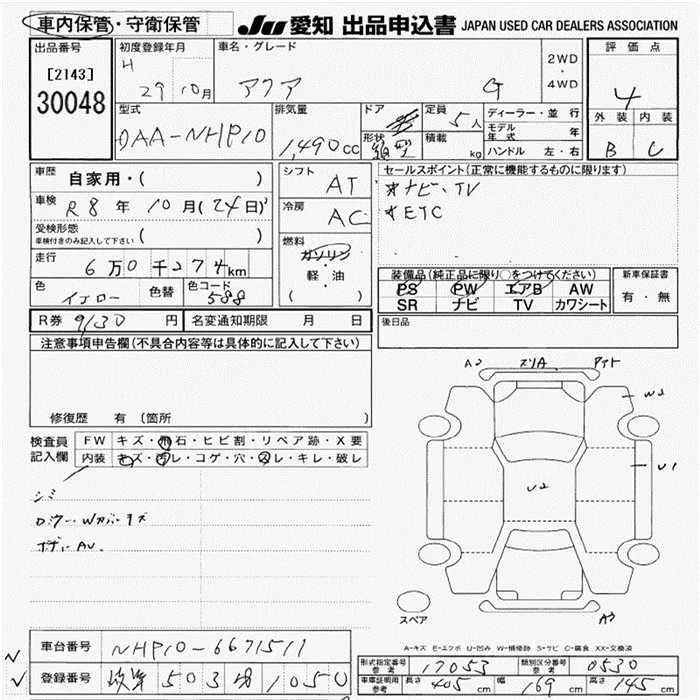 車内保管・守衛保管
JU 愛知 出品申込書 JAPAN USED CAR DEALERS ASSOCIATION
出品番号
[2143]
30048
初度登録年月
H 29 10月
車名・グレード
アクア G
2WD
・
4WD
評価点
4
外装 内装
B C
型式
DAA-NHP10
排気量
1,490cc
ドア
形状
箱型
定員
5人
積載
kg
ディーラー・並行
モデル年式 年
ハンドル 左・右
車歴
自家用・( )
車検
R8年10月(24日)
受検形態
車検付きのみ記入して下さい ( )
走行
6万0千274km
色
イエロー
色替
色コード
588
シフト
AT
冷房
AC
燃料
ガソリン
・
軽・油
( )
セールスポイント(正常に機能するものに限ります)
*ナビ・TV
*ETC
装備品(純正品に限り○をつけてください)
PS PW エアB AW
SR ナビ TV カワシート
新車保証書
有・無
R券 9130円
名変通知期限 月 日
後日品
注意事項申告欄(不具合内容等は具体的に記入して下さい)
修復歴 有(箇所 )
検査員
記入欄
FW キズ・飛石・ヒビ割・リペア跡・X要
内装 キズ・汚レ・コゲ・穴・スレ・キレ・破レ
シミ
A2 スリA
W2
U1
U2
スペア
A-キズ E-エクボ U-凹み W-補修跡 S-サビ C-腐食 XX-交換済
車台番号
NHP10-6671511
登録番号
503 1050
形式指定番号
参考
17053
類別区分番号
参考
0530
車車証明用
参考
長さ 405cm
幅 169cm
高さ 145cm